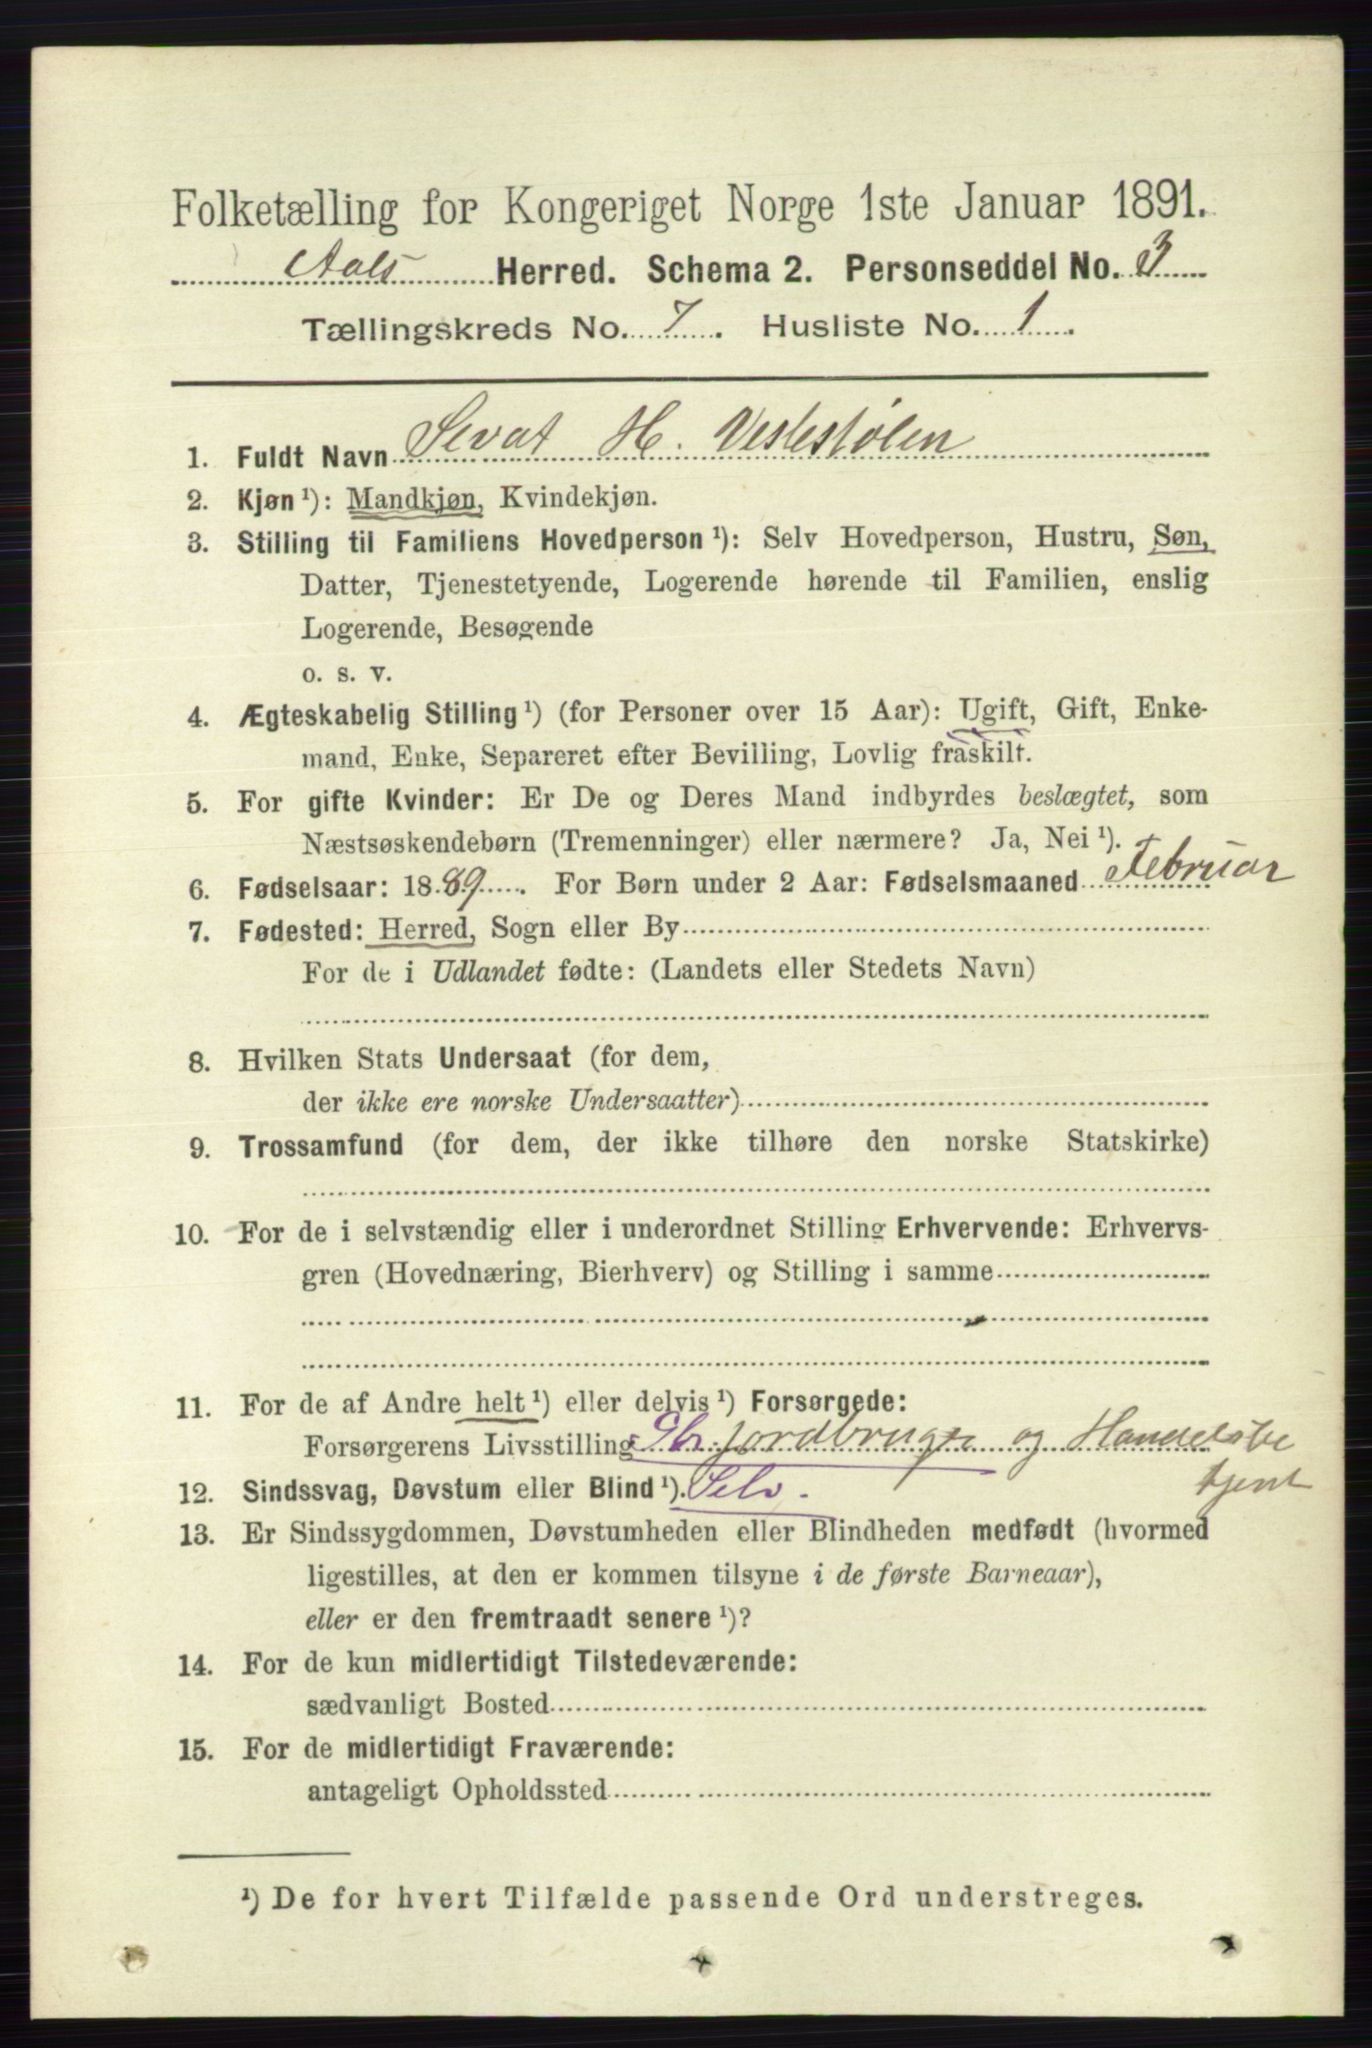 Folketælling for Kongeriget Norge 1ste Januar 1891.
Aals Herred. Schema 2. Personseddel No. 3
Tællingskreds No. 7. Husliste No. 1.
1. Fuldt Navn Sevat H. Veslestølen
2. Kjøn ¹): Mandkjøn, Kvindekjøn.
3. Stilling til Familiens Hovedperson ¹): Selv Hovedperson, Hustru, Søn,
Datter, Tjenestetyende, Logerende hørende til Familien, enslig
Logerende, Besøgende
o. s. v.
4. Ægteskabelig Stilling ¹) (for Personer over 15 Aar): Ugift, Gift, Enke-
mand, Enke, Separeret efter Bevilling, Lovlig fraskilt.
5. For gifte Kvinder: Er De og Deres Mand indbyrdes beslægtet, som
Næstsøskendebørn (Tremenninger) eller nærmere? Ja, Nei ¹).
6. Fødselsaar: 1889. For Børn under 2 Aar: Fødselsmaaned Februar
7. Fødested: Herred, Sogn eller By
For de i Udlandet fødte: (Landets eller Stedets Navn)
8. Hvilken Stats Undersaat (for dem,
der ikke ere norske Undersaatter)
9. Trossamfund (for dem, der ikke tilhøre den norske Statskirke)
10. For de i selvstændig eller i underordnet Stilling Erhvervende: Erhvervs-
gren (Hovednæring, Bierhverv) og Stilling i samme
11. For de af Andre helt ¹) eller delvis ¹) Forsørgede:
Forsørgerens Livsstilling Gbr. jordbruger og Handelsbe
tjent
12. Sindssvag, Døvstum eller Blind ¹). Selv.
13. Er Sindssygdommen, Døvstumheden eller Blindheden medfødt (hvormed
ligestilles, at den er kommen tilsyne i de første Barneaar),
eller er den fremtraadt senere ¹)?
14. For de kun midlertidigt Tilstedeværende:
sædvanligt Bosted
15. For de midlertidigt Fraværende:
antageligt Opholdssted
¹) De for hvert Tilfælde passende Ord understreges.